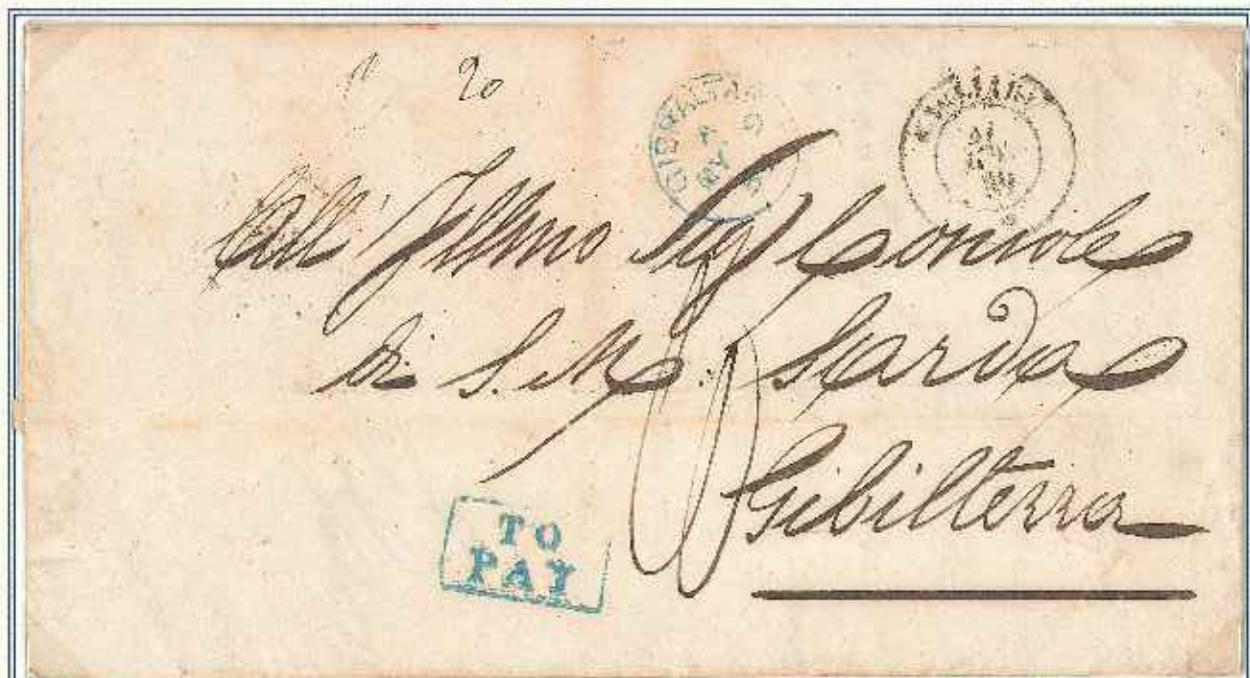 20
GIBRALTAR
MY
All' Illmo Sigr Console
di S. M. Sarda
Gibilterra
TO
PAY